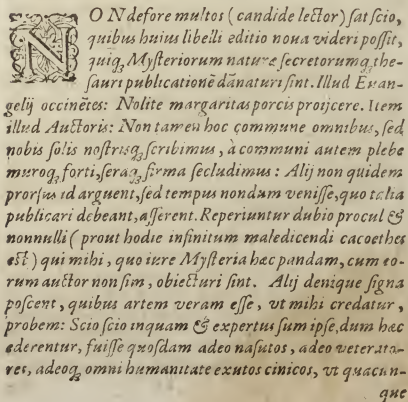 NON defore multos (candide lector) sat scio,
quibus huius libelli editio noua videri possit,
quiq; Mysteriorum naturæ secretorumq; the-
sauri publicationē dānaturi sint. Illud Euan-
gelij occinētes: Nolite margaritas porcis proijcere. Item
illud Auctoris: Non tamen hoc commune omnibus, sed
nobis solis nostrisq; scribimus, à communi autem plebe
muroq; forti, seraq; firma secludimus: Alij non quidem
prorsus id arguent, sed tempus nondum venisse, quo talia
publicari debeant, asserent. Reperiuntur dubio procul &
nonnulli (prout hodie infinitum maledicendi cacoethes
est) qui mihi, quo iure Mysteria hæc pandam, cum eo-
rum auctor non sim, obiecturi sint. Alij denique signa
poscent, quibus artem veram esse, vt mihi credatur,
probem: Scio scio inquam & expertus sum ipse, dum hæc
ederentur, fuisse quosdam adeo nasutos, adeo veterato-
res, adeoq; omni humanitate exutos cinicos, vt quacun-
que